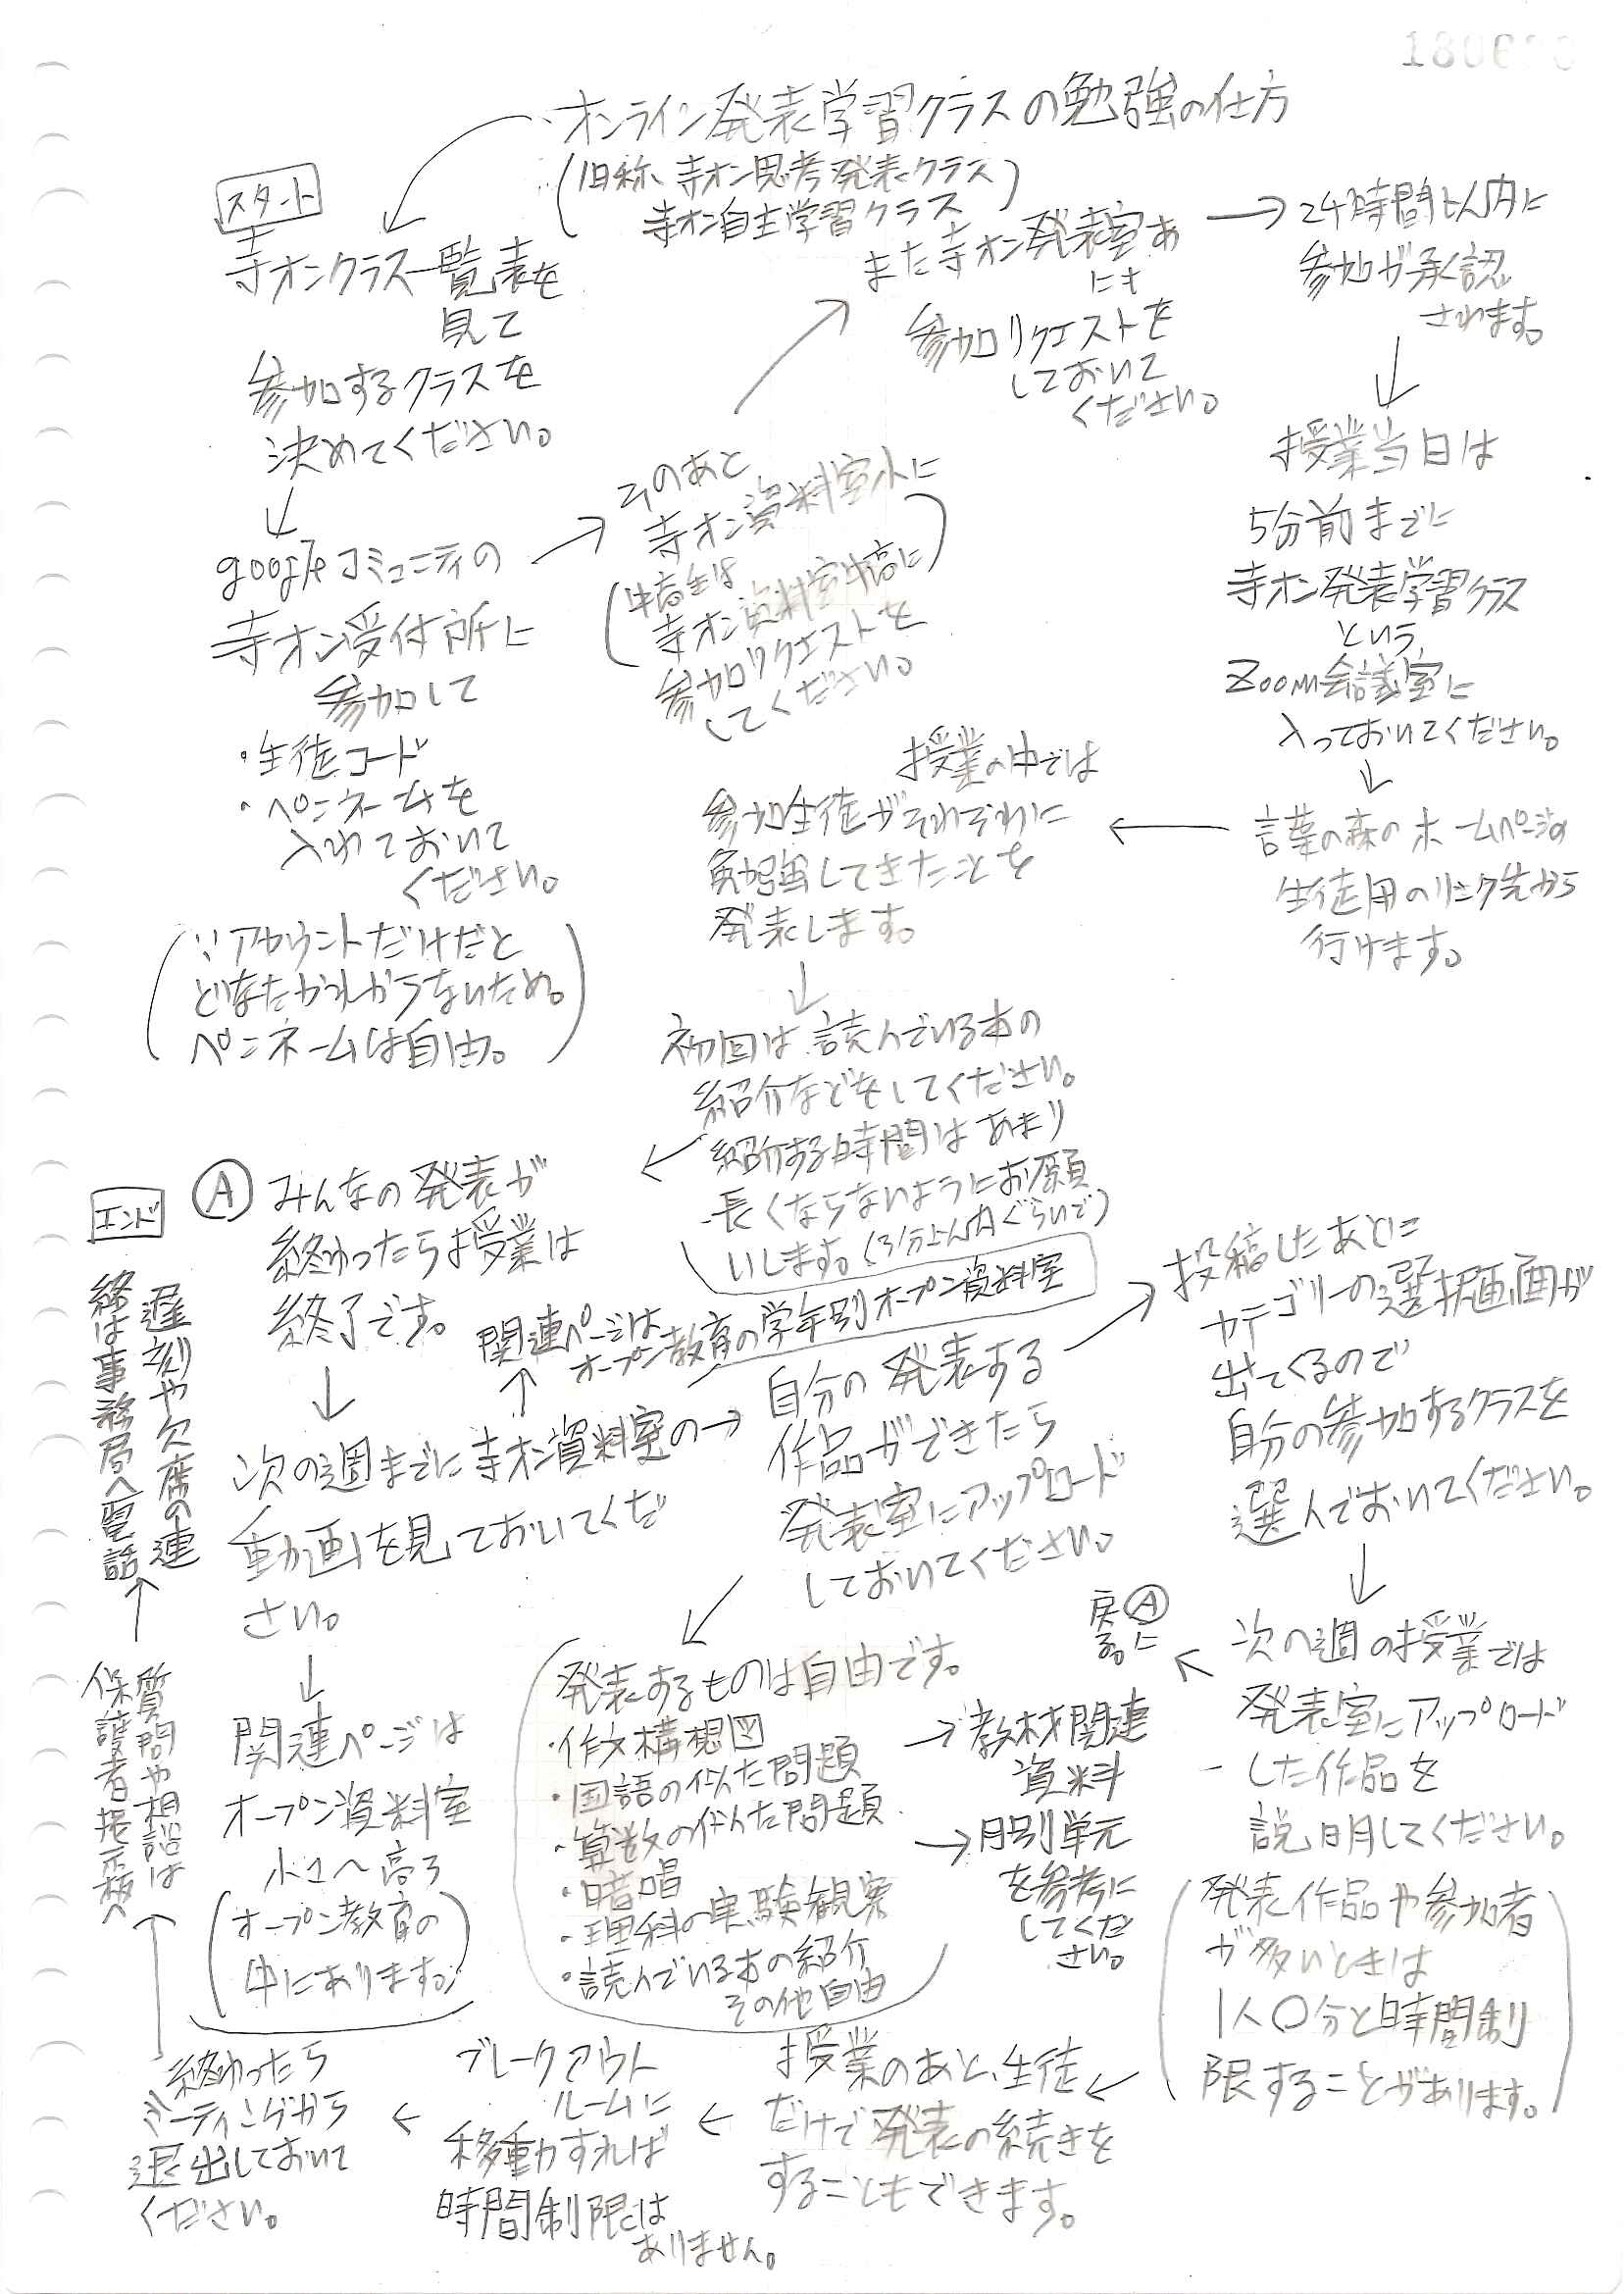 オンライン発表学習クラスの勉強の仕方
(旧称、寺オン思考発表クラス
寺オン自主学習クラス)
スタート
寺オンクラス一覧表を
見て
参加するクラスを
決めてください。
googleコミュニティの
寺オン受付所に
参加して
・生徒コード
・ペンネームを
入れておいて
ください。
(∵アカウントだけだと
どなたかわからないため。
ペンネームは自由。)
このあと
寺オン資料室小に
(中高生は
寺オン資料室中高に)
参加リクエストを
してください。
また寺オン発表室あ
にも
参加リクエストを
しておいて
ください。
→24時間以内に
参加が承認
されます。
授業当日は
5分前までに
寺オン発表学習クラス
という
Zoom会議室に
入っておいてください。
言葉の森のホームページの
生徒用のリンク先から
行けます。
授業の中では
参加生徒がそれぞれに
勉強してきたことを
発表します。
初回は読んでいる本の
紹介などをしてください。
紹介する時間はあまり
長くならないようにお願
いします。(3分以内ぐらいで)
Ⓐ みんなの発表が
終わったら授業は
終了です。
次の週までに寺オン資料室の→
動画を見ておいてくだ
さい。
関連ページは
オープン教育の学年別オープン資料室
関連ページは
オープン資料室
小1〜高3
(オープン教育の
中にあります。)
自分の発表する
作品ができたら
発表室にアップロード
しておいてください。
発表するものは自由です。
・作文構想図
・国語の似た問題
・算数の似た問題
・暗唱
・理科の実験観察
・読んでいる本の紹介
その他自由
→教材関連
資料
→月別単元
を参考に
してくだ
さい。
投稿したあとに
カテゴリーの選択画面が
出てくるので
自分の参加するクラスを
選んでおいてください。
次の週の授業では
発表室にアップロード
した作品を
説明してください。
Ⓐに
戻る。
(発表作品や参加者
が多いときは
1人〇分と時間制
限することがあります。)
授業のあと、生徒
だけで発表の続きを
することもできます。
ブレークアウト
ルームに
移動すれば
時間制限は
ありません。
終わったら
ミーティングから
退出しておいて
ください。
質問や相談は
保護者掲示板へ
遅刻や欠席の連
絡は事務局へ電話
エンド